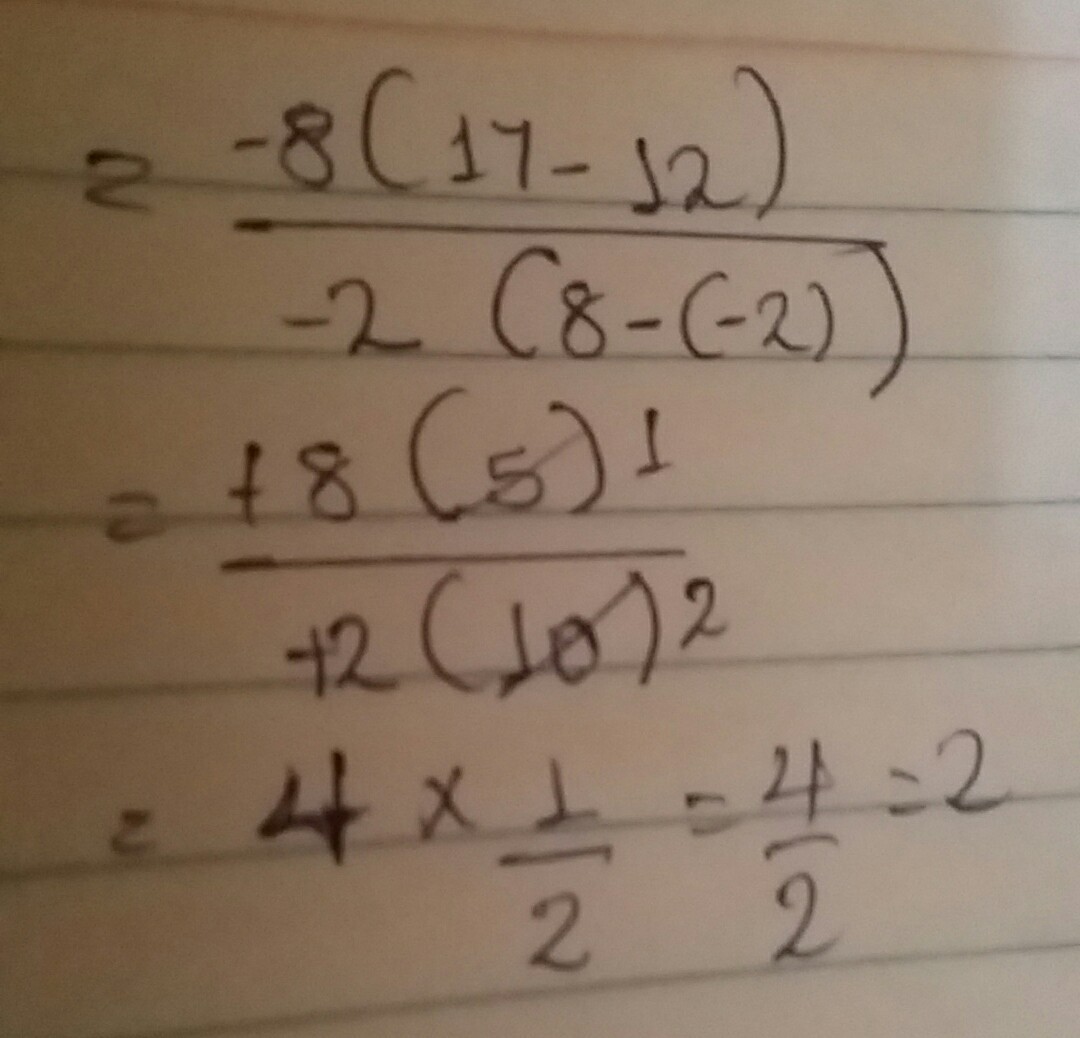 = -8(17-12)
-2 (8-(-2))
= +8 (5) 1
+2 (10) 2
= 4 × 1/2 = 4/2 = 2